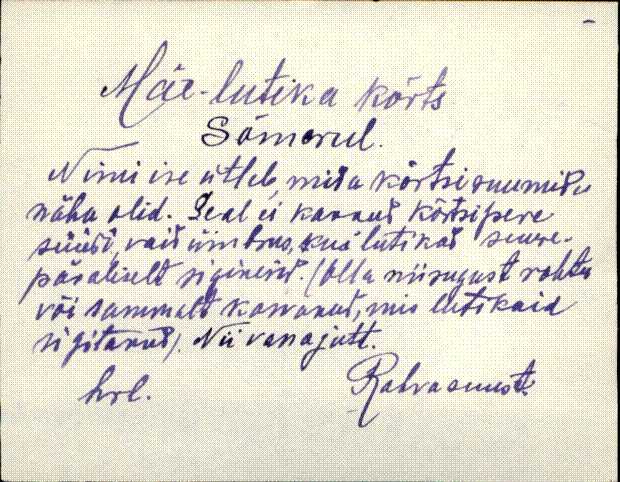 Mäe-lutika kõrts
Sõmerul.
Nimi ise ütleb, mida kõrtsi
näha olid. Seal ei kannud kõrtsipere
süüd, vaid ümbrus, kus lutikad suure-
päraliselt siginesid. (Olla niisugust rohtu
või sammalt kasvanud, mis lutikaid
sigitanud). Nii vanajutt.
hrl. Rahvasuust.